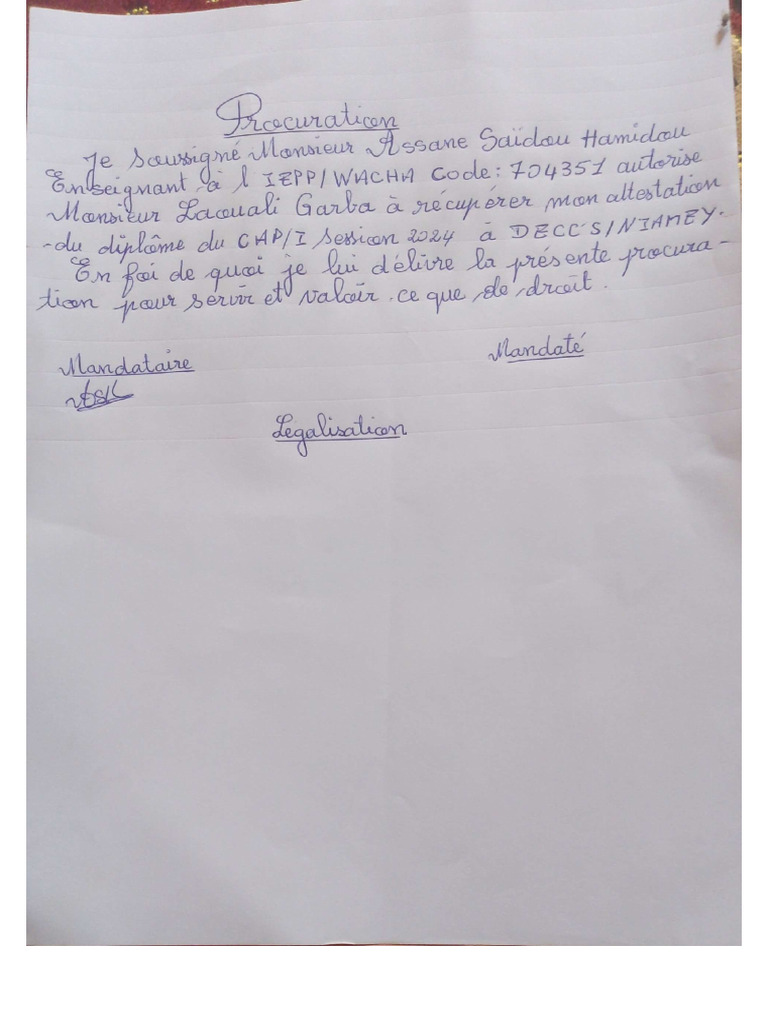 Procuration
Je soussigné Monsieur Assane Saïdou Hamidou
Enseignant à l'IEPP/WACHA Code: 704351 autorise
Monsieur Laouali Garba à récupérer mon attestation
-du diplôme du CAP/I session 2024 à DECCS/NIAMEY.
En foi de quoi je lui délivre la présente procura-
tion pour servir et valoir ce que de droit.
Mandataire
Mandaté
Légalisation